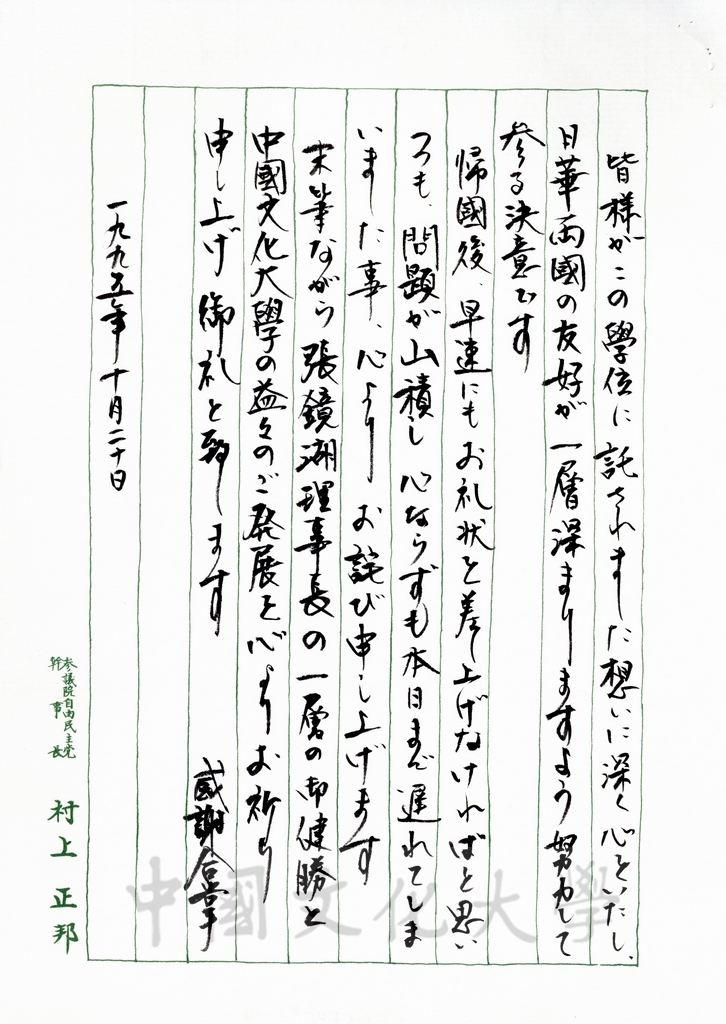 皆様がこの學位に託されました想いに深く心をいたし、
日華両國の友好が一層深まりますよう努力して
参る決意です
帰國後、早速にもお礼状を差し上げなければと思い
つつも、問題が山積し心ならずも本日まで遅れてしま
いました事、心よりお詫び申し上げます
末筆ながら張鏡湖理事長の一層の御健勝と
中國文化大學の益々のご発展を心よりお祈り
申し上げ御礼と致します
感謝合掌
一九九五年十月二十日
参議院自由民主党
幹事長
村上正邦
中國文化大學